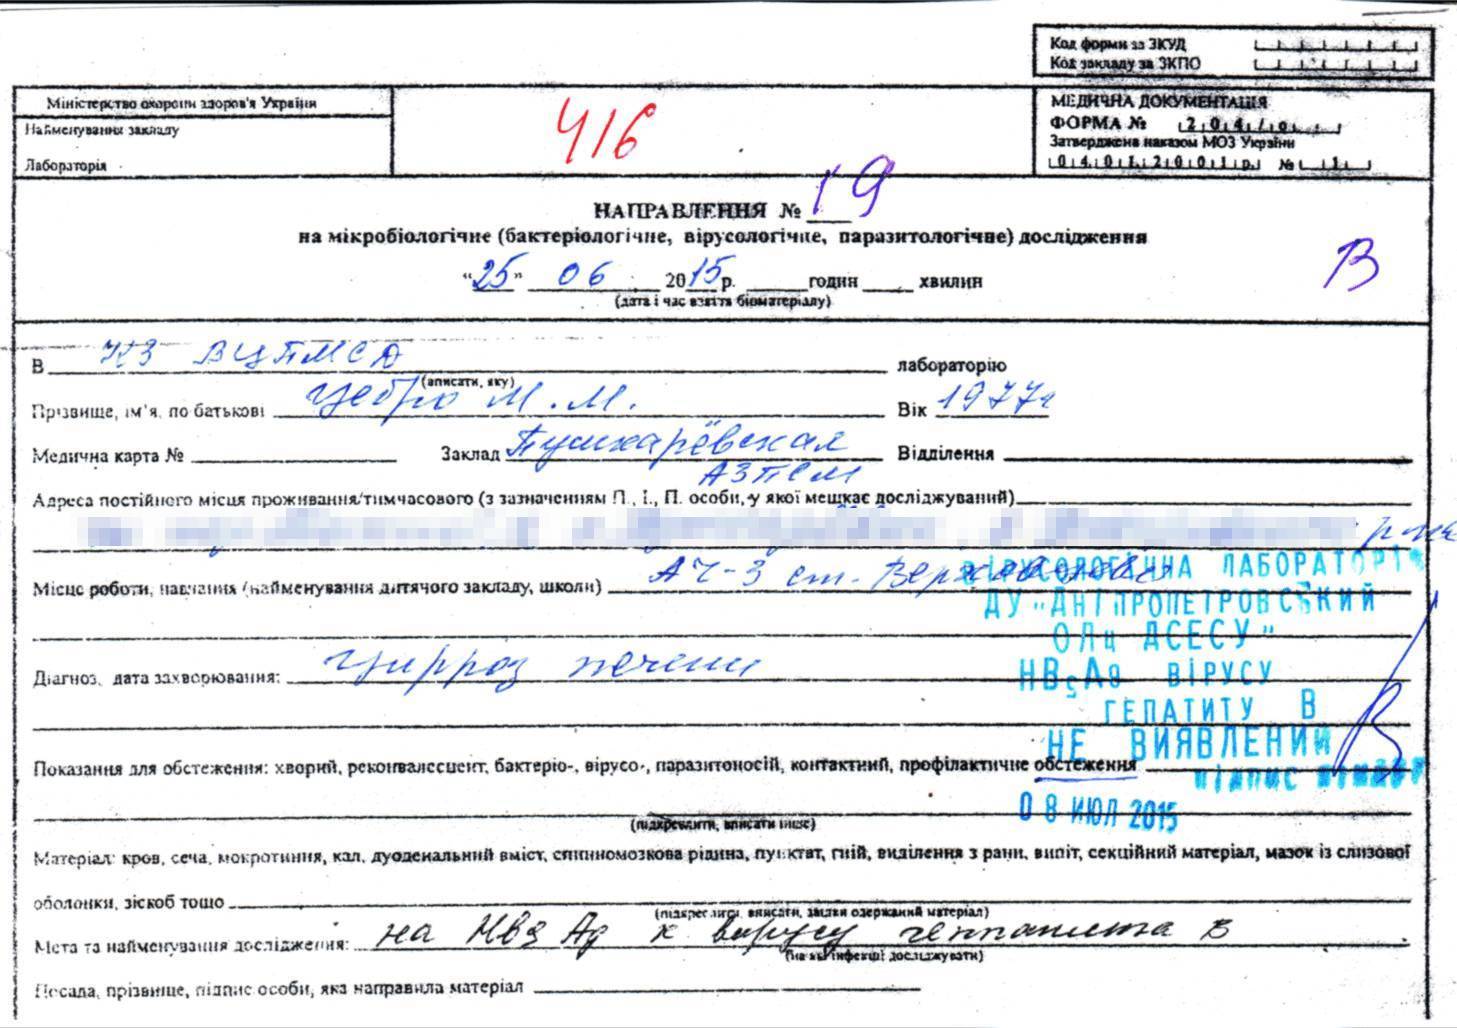 Код форми за ЗКУД
Код закладу за ЗКПО
Міністерство охорони здоров'я України
Найменування закладу
Лабораторія
416
МЕДИЧНА ДОКУМЕНТАЦІЯ
ФОРМА № 204/о
Затверджена наказом МОЗ України
04.01.2001р. № 1
НАПРАВЛЕННЯ № 19
на мікробіологічне (бактеріологічне, вірусологічне, паразитологічне) дослідження
В
"25" 06 2015р. годин хвилин
(дата і час взяття біоматеріалу)
В КЗ ВЦПМСД лабораторію
(вписати, яку)
Прізвище, ім'я, по батькові Цебро М.М. Вік 1977г
Медична карта № Заклад Пушкарёвская Відділення
АЗПСМ
Адреса постійного місця проживання/тимчасового (з зазначенням П., І., П. особи, у якої мешкає досліджуваний)
Місце роботи, навчання (найменування дитячого закладу, школи) АЧ-3 ст.
ВІРУСОЛОГІЧНА ЛАБОРАТОРІЯ
ДУ "ДНІПРОПЕТРОВСЬКИЙ
ОЛЦ ДСЕСУ"
Діагноз, дата захворювання: Цирроз печени
HBsAg ВІРУСУ
ГЕПАТИТУ В
НЕ ВИЯВЛЕНИЙ
Показання для обстеження: хворий, реконвалесцент, бактеріо-, вірусо-, паразитоносій, контактний, профілактичне обстеження
ПІДПИС
08 ИЮЛ 2015
(підкреслити, вписати інше)
Матеріал: кров, сеча, мокротиння, кал, дуоденальний вміст, спинномозкова рідина, пунктат, гній, виділення з рани, випіт, секційний матеріал, мазок із слизової
оболонки, зіскоб тощо
(підкреслити, вписати, звідки одержаний матеріал)
Мета та найменування дослідження: на HBs Ag к вирусу геппатита В
(на які інфекції досліджувати)
Посада, прізвище, підпис особи, яка направила матеріал